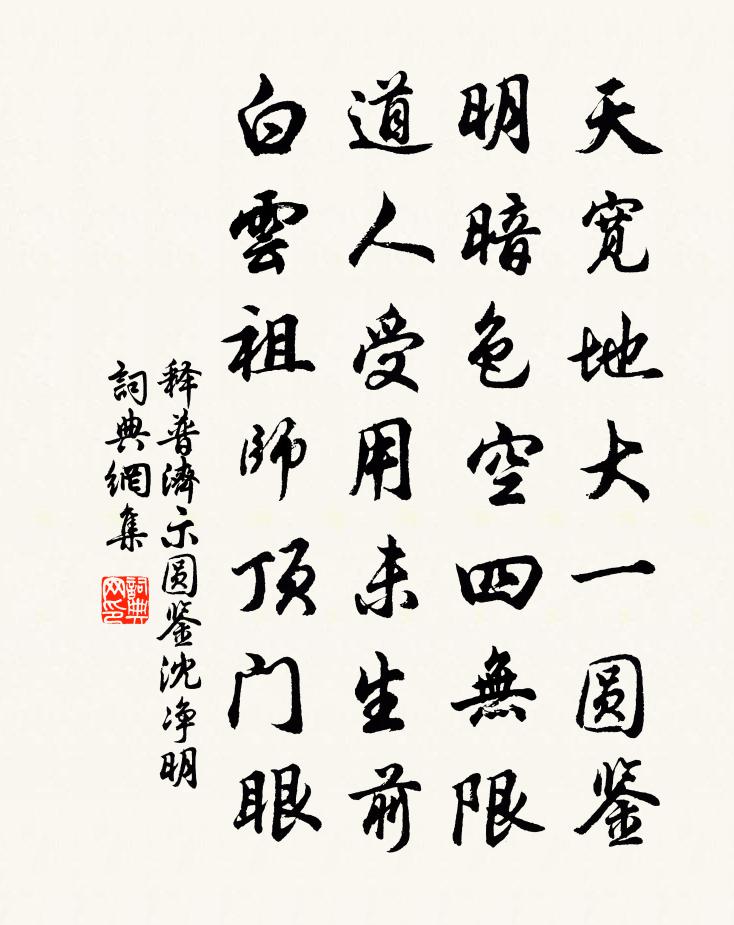 天寬地大一圆鉴
明暗色空四無限
道人受用未生前
白雲祖師顶门眼
释普濟示圆鉴沈净明
詞典網集
詞典网印